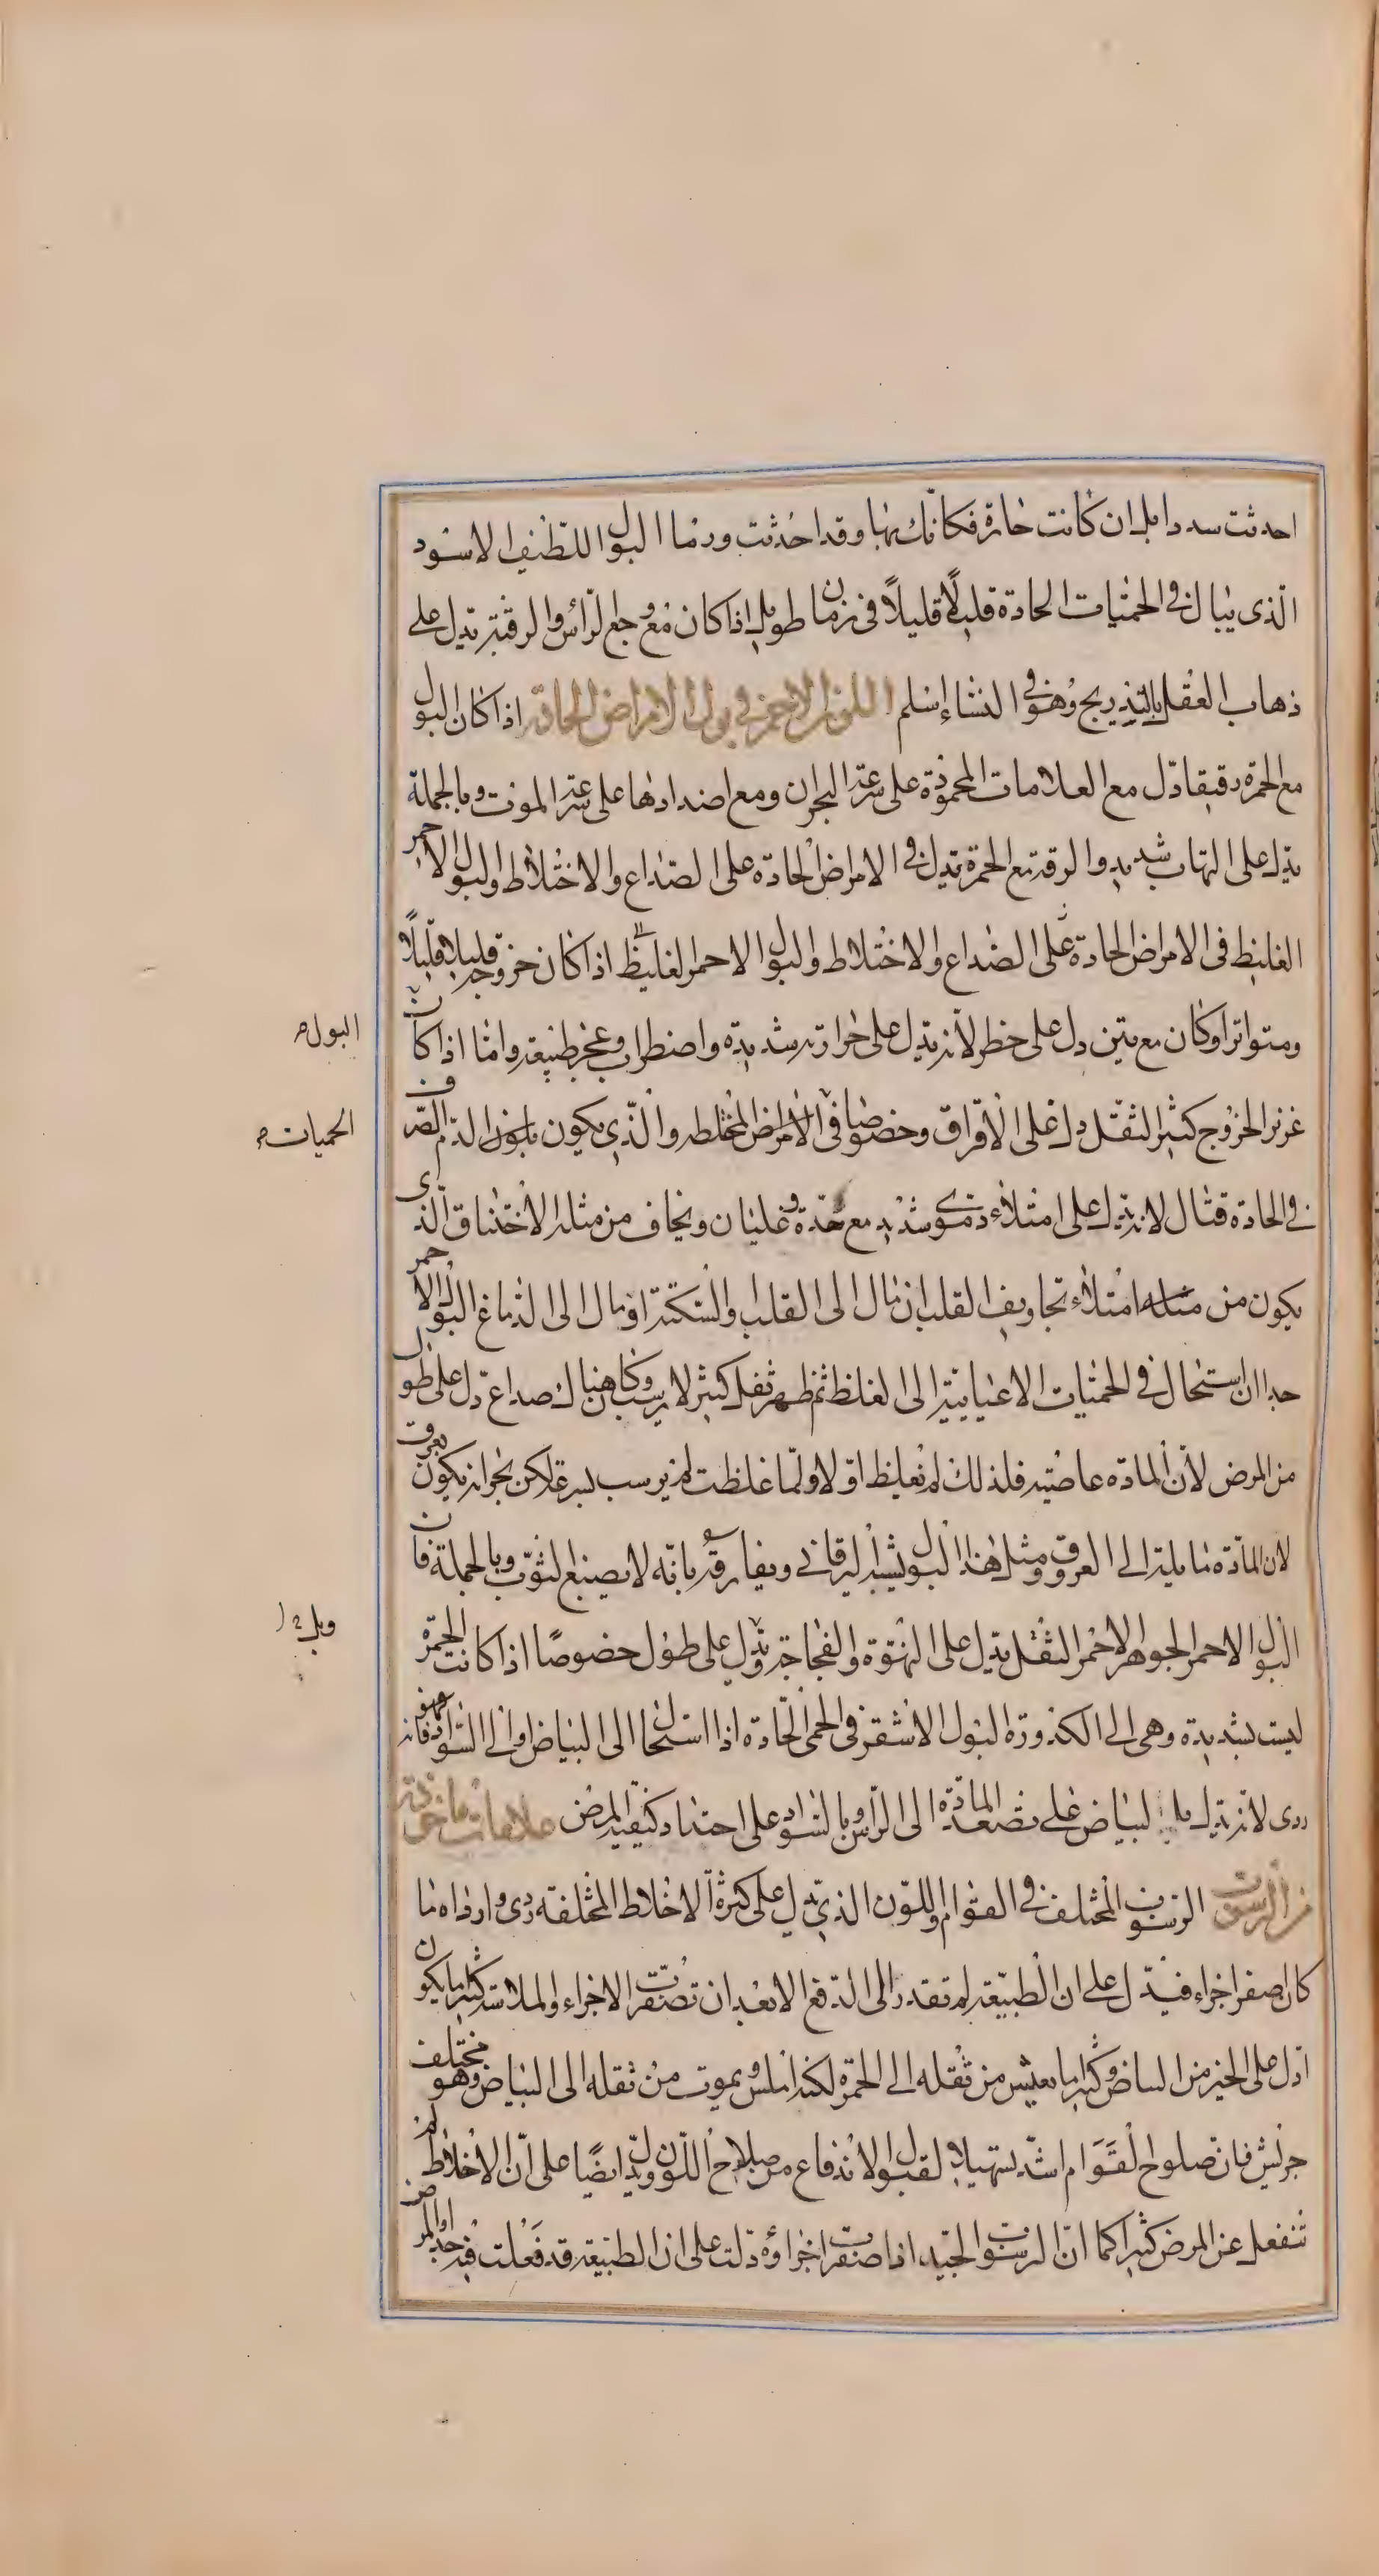 احدثت سددا بل ان كانت حارة فكانك بها وقد احدثت وربما البول اللطيف الاسود
الذى يبال فى الحميات الحادة قليلًا قليلًا فى زمان طويل اذا كان مع وجع الرأس والرقبة يدل على
ذهاب العقل بالتدريج وهو فى النساء اسلم اللون الاحمر فى بول الامراض الحادة اذا كان البول
مع الحمرة رقيقا دل مع العلامات المحمودة على سرعة البحران ومع اضدادها على سرعة الموت وبالجملة
يدل على التهاب شديد والرقة مع الحمرة يدل فى الامراض الحادة على الصداع والاختلاط والبول الاحمر
الغليظ فى الامراض الحادة على الصداع والاختلاط والبول الاحمر الغليظ اذا كان خروجه قليلا قليلًا
ومتواترا وكان مع نتن دل على خطر لانه يدل على حرارة شديدة واضطراب وعجز طبيعة واما اذا كان
غزير الخروج كثير الثقل دل على الافراق وخصوصا فى الامراض المختلطه والذى يكون بلون الدم الصرف
فى الحادة قتال لانه يدل على امتلاء دموى شديد مع حدة وغليان ويخاف من مثله الاختناق الذى
يكون من مثله امتلاء تجاويف القلب ان مال الى القلب والسكتة او مال الى الدماغ البول الاحمر
جدا ان استحال فى الحميات الاعيائية الى الغلظ ثم ظهر ثفل كثير لا يرسب وكان هناك صداع دل على طول
من المرض لأن المادة عاصية فلذلك لم تغلظ اولا ولما غلظت لم يرسب بسرعة لكن بحرانه يكون بعرق
لان المادة مايلة الى العروق ومثل هذا البول يشبه اليرقانى ويفارقه بانه لا يصبغ الثوب وبالجملة فان
البول الاحمر الجوهر الاحمر الثفل يدل على النهوة والفجاجة ويدل على طول خصوصًا اذا كانت الحمرة
ليست بشديدة وهى الى الكدورة البول الاشقر فى الحمى الحادة اذا استحال الى البياض او الى السواد فهو
ردى لانه يدل بالبياض على تصعد المادة الى الرأس وبالسواد على احتداد كيفية المرض علامات ماخوذة
من الرسوب الرسوب المختلف فى القوام واللون الذى يدل على كثرة الاخلاط المختلفه ردى وارداه ما
كان اصغر اجزاء فيدل على ان الطبيعة لم تقدر الى الدفع الا بعد ان تصغرت الاجزاء والملاسة كثيرا ما يكون
ادل على الخير من البياض وكثيرا ما يعيش من ثفله الى الحمرة لكنه املس ويموت من ثفله الى البياض وهو مختلف
جريش فان صلوح القوام اشد تسهيلا لقبول الاندفاع من صلاح اللون ويدل ايضًا على ان الاخلاط لم
تنفعل عن المرض كثيرا كما ان الرسوب الجيد اذا صغرت اجزاؤه دلت على ان الطبيعة قد فعلت فيه
البول
الحميات